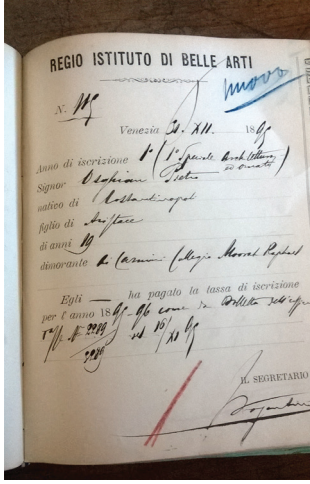 REGIO ISTITUTO DI BELLE ARTI
nuovo
N. 115
Venezia 31. XII. 1895
Anno di iscrizione 1° (1° Speciale Architettura ed ornato)
Signor Osghian Pietro
nativo di Costantinopoli
figlio di Aristace
di anni 19
dimorante a Carmini Collegio Moorat Raphael
Egli — ha pagato la tassa di iscrizione
per l'anno 1895-96 come da Bolletta dell'
N° 3289 16/XI 95
3286
IL SEGRETARIO